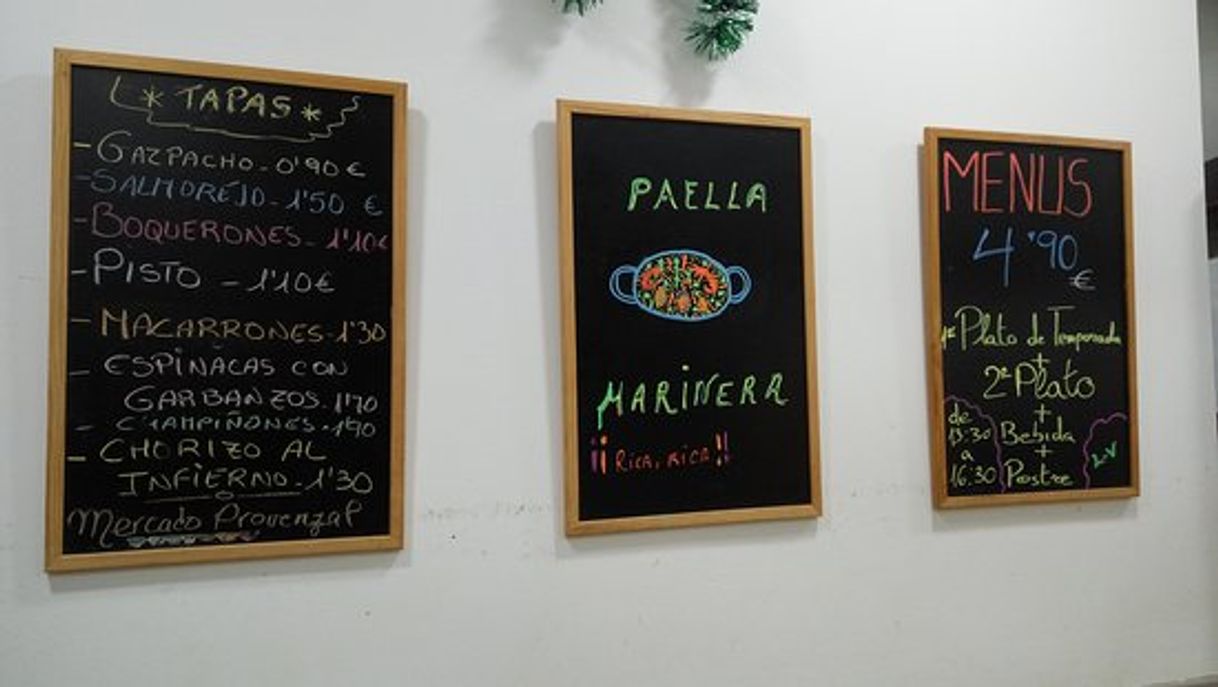 * TAPAS *
- GAZPACHO - 0'90 €
- SALMOREJO - 1'50 €
- BOQUERONES - 1'10€
- PISTO - 1'10€
- MACARRONES - 1'30
- ESPINACAS CON
GARBANZOS. 1'70
- CHAMPIÑONES. 1'90
- CHORIZO AL
INFIERNO - 1'30
Mercado Provenzal
PAELLA
MARINERA
¡¡RICA, RICA!!
MENUS
4'90
€
1er Plato de Temporada
+
2º Plato
+
Bebida
+
Postre
de
13:30
a
16:30
L-V